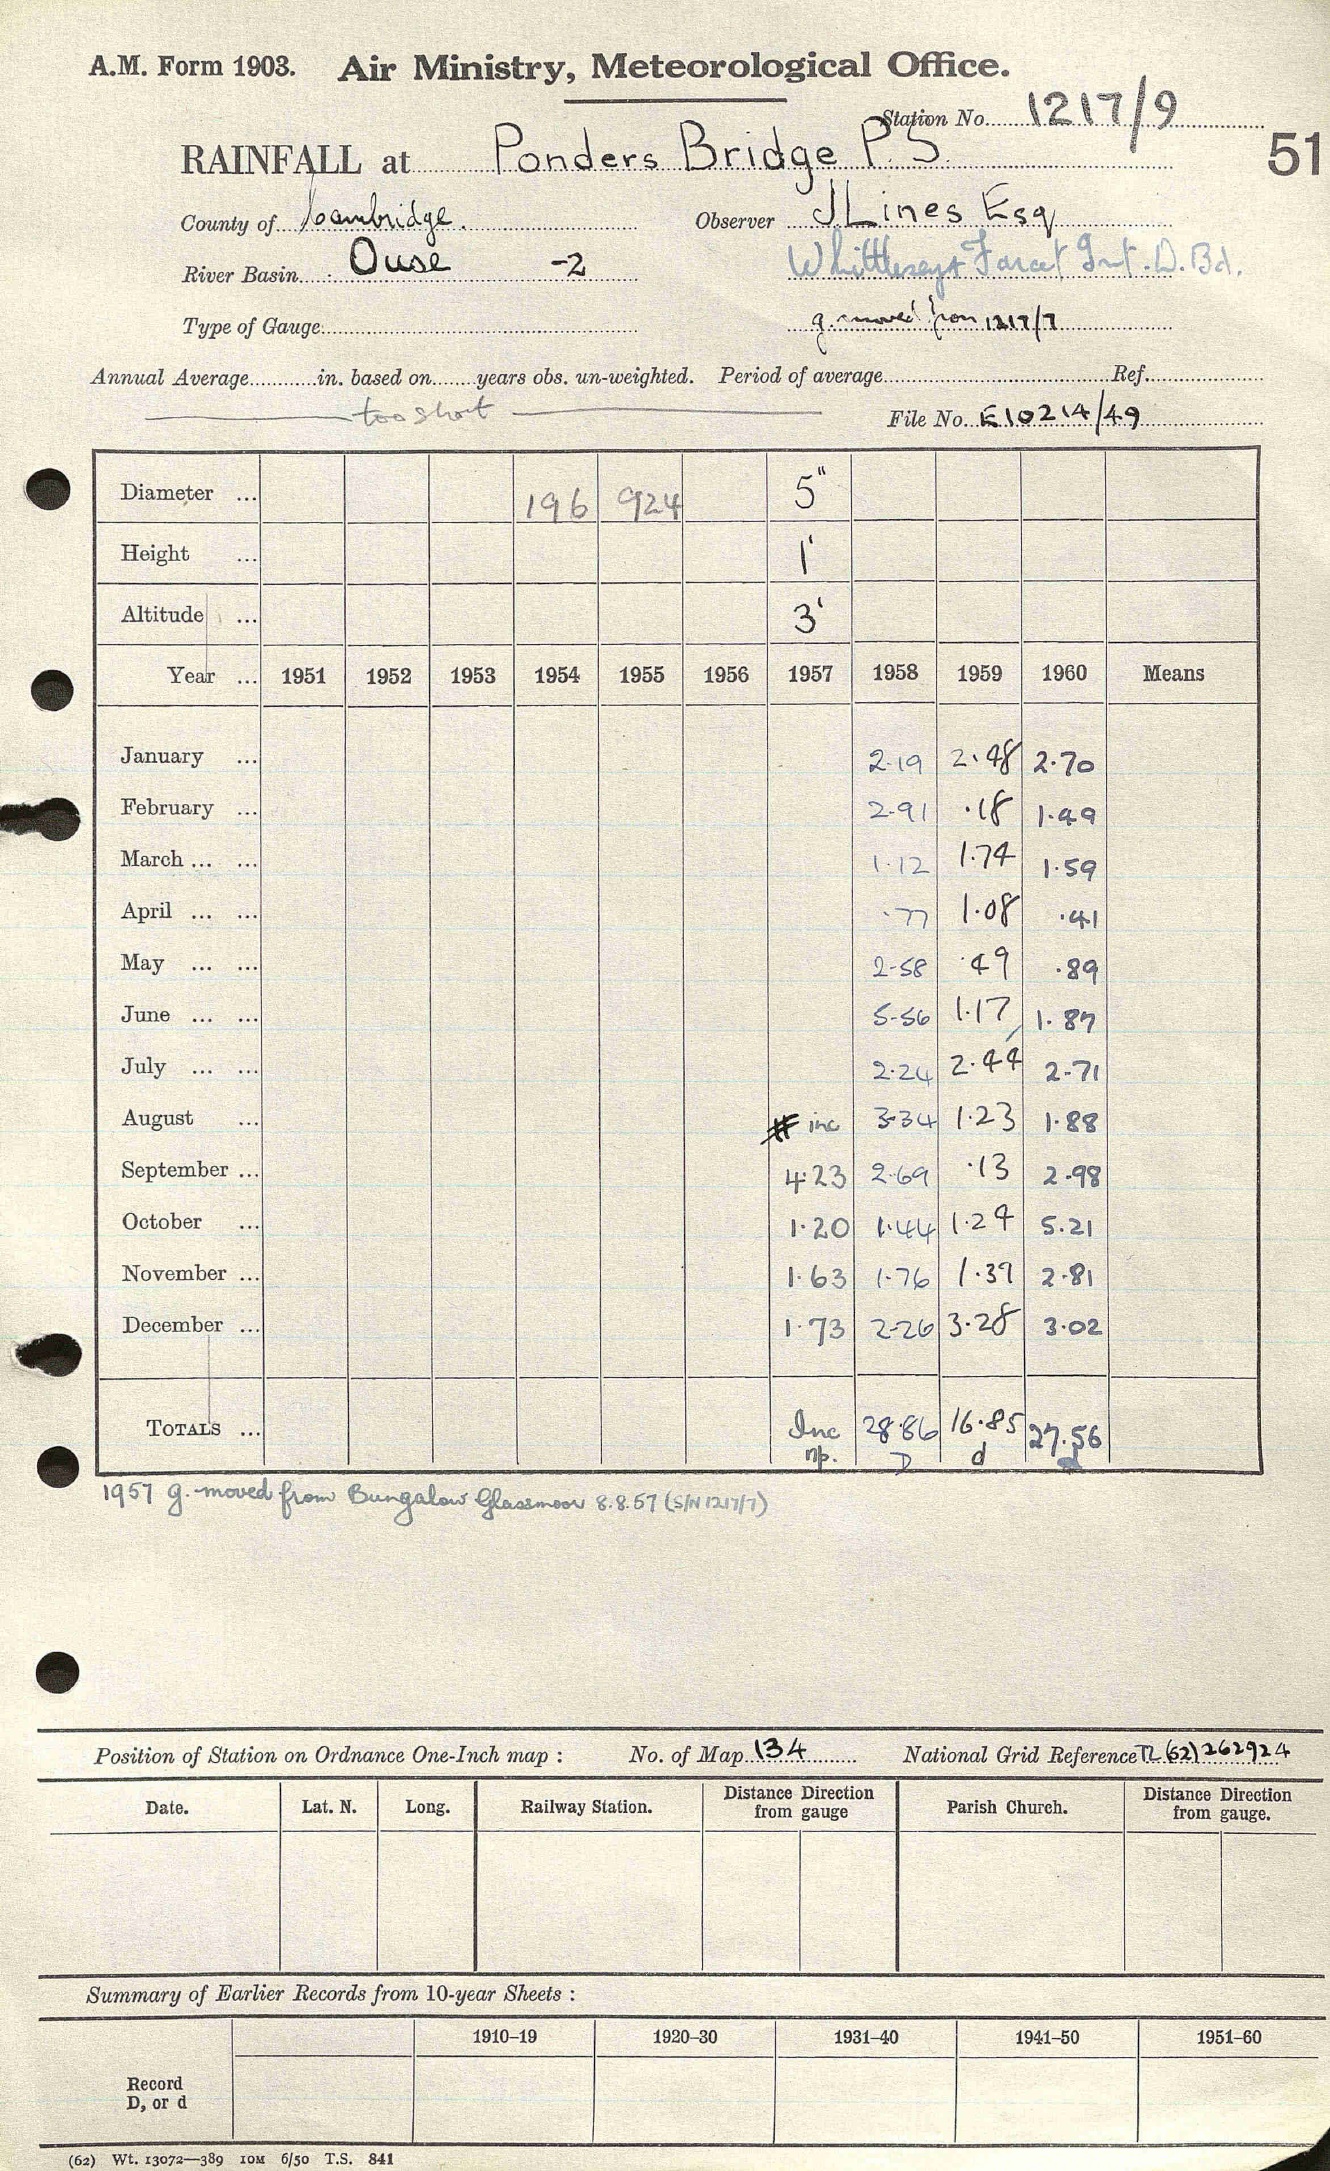 A.M. Form 1903. Air Ministry, Meteorological Office.
Station No. 1217/9
51
RAINFALL at Ponders Bridge P.S.
County of Cambridge. Observer J Lines Esq
River Basin Ouse -2 Whittlesey & Farcet Int. D. Bd.
Type of Gauge g. moved from 1217/7
Annual Average in. based on years obs. un-weighted. Period of average Ref.
too short
File No. E10214/49
Diameter ... 196 924 5"
Height ... 1'
Altitude ... 3'
Year ... 1951 1952 1953 1954 1955 1956 1957 1958 1959 1960 Means
January ... 2.19 2.48 2.70
February ... 2.91 .18 1.49
March ... ... 1.12 1.74 1.59
April ... ... .77 1.08 .41
May ... ... 2.58 .49 .89
June ... ... 5.56 1.17 1.87
July ... ... 2.24 2.44 2.71
August ... # inc 3.34 1.23 1.88
September ... 4.23 2.69 .13 2.98
October ... 1.20 1.44 1.24 5.21
November ... 1.63 1.76 1.39 2.81
December ... 1.73 2.26 3.28 3.02
TOTALS ... Inc 28.86 16.85 27.56
np. D d d
1957 g. moved from Bungalow Glassmoor 8.8.57 (S/N 1217/7)
Position of Station on Ordnance One-Inch map : No. of Map 134 National Grid Reference TL (52) 262924
Date. Lat. N. Long. Railway Station. Distance Direction from gauge Parish Church. Distance Direction from gauge.
Summary of Earlier Records from 10-year Sheets :
1910–19 1920–30 1931–40 1941–50 1951–60
Record
D, or d
(62) Wt. 13072—389 10M 6/50 T.S. 841